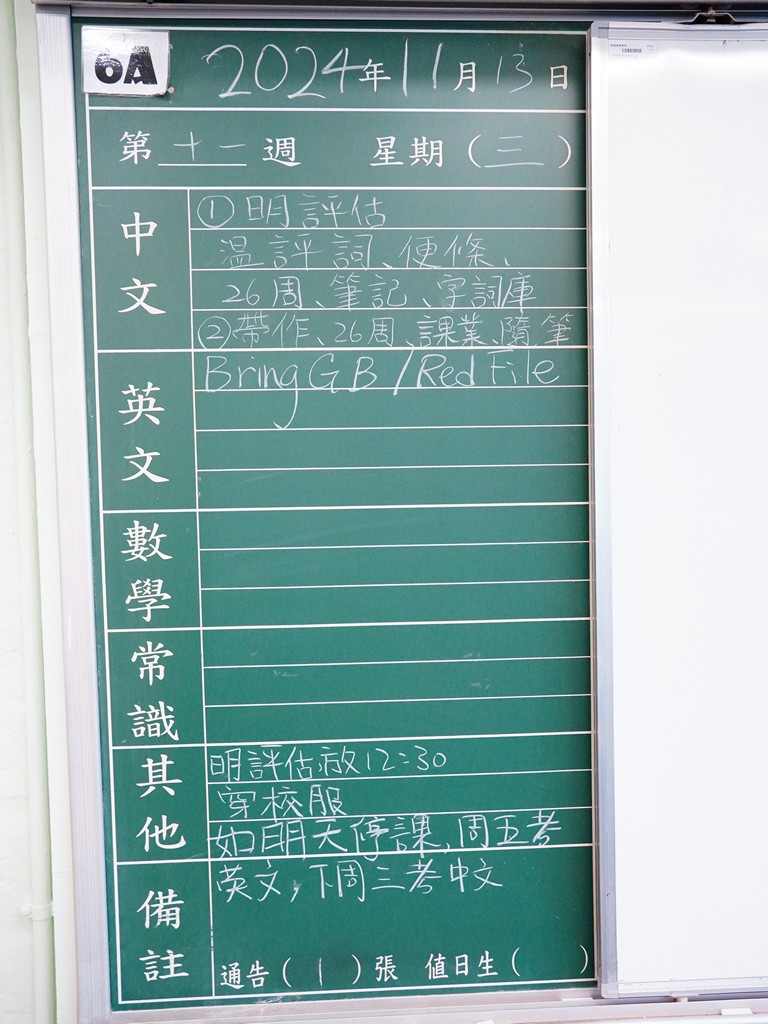 6A
2024年11月13日
第十一週 星期(三)
中文
①明評估
温評詞、便條、
26周、筆記、字詞庫
②帶作、26周、課業、隨筆
英文
Bring GB/Red File
數學
常識
其他
明評估放12:30
穿校服
如明天停課,周五考
備註
英文,下周三考中文
通告(1)張 值日生( )